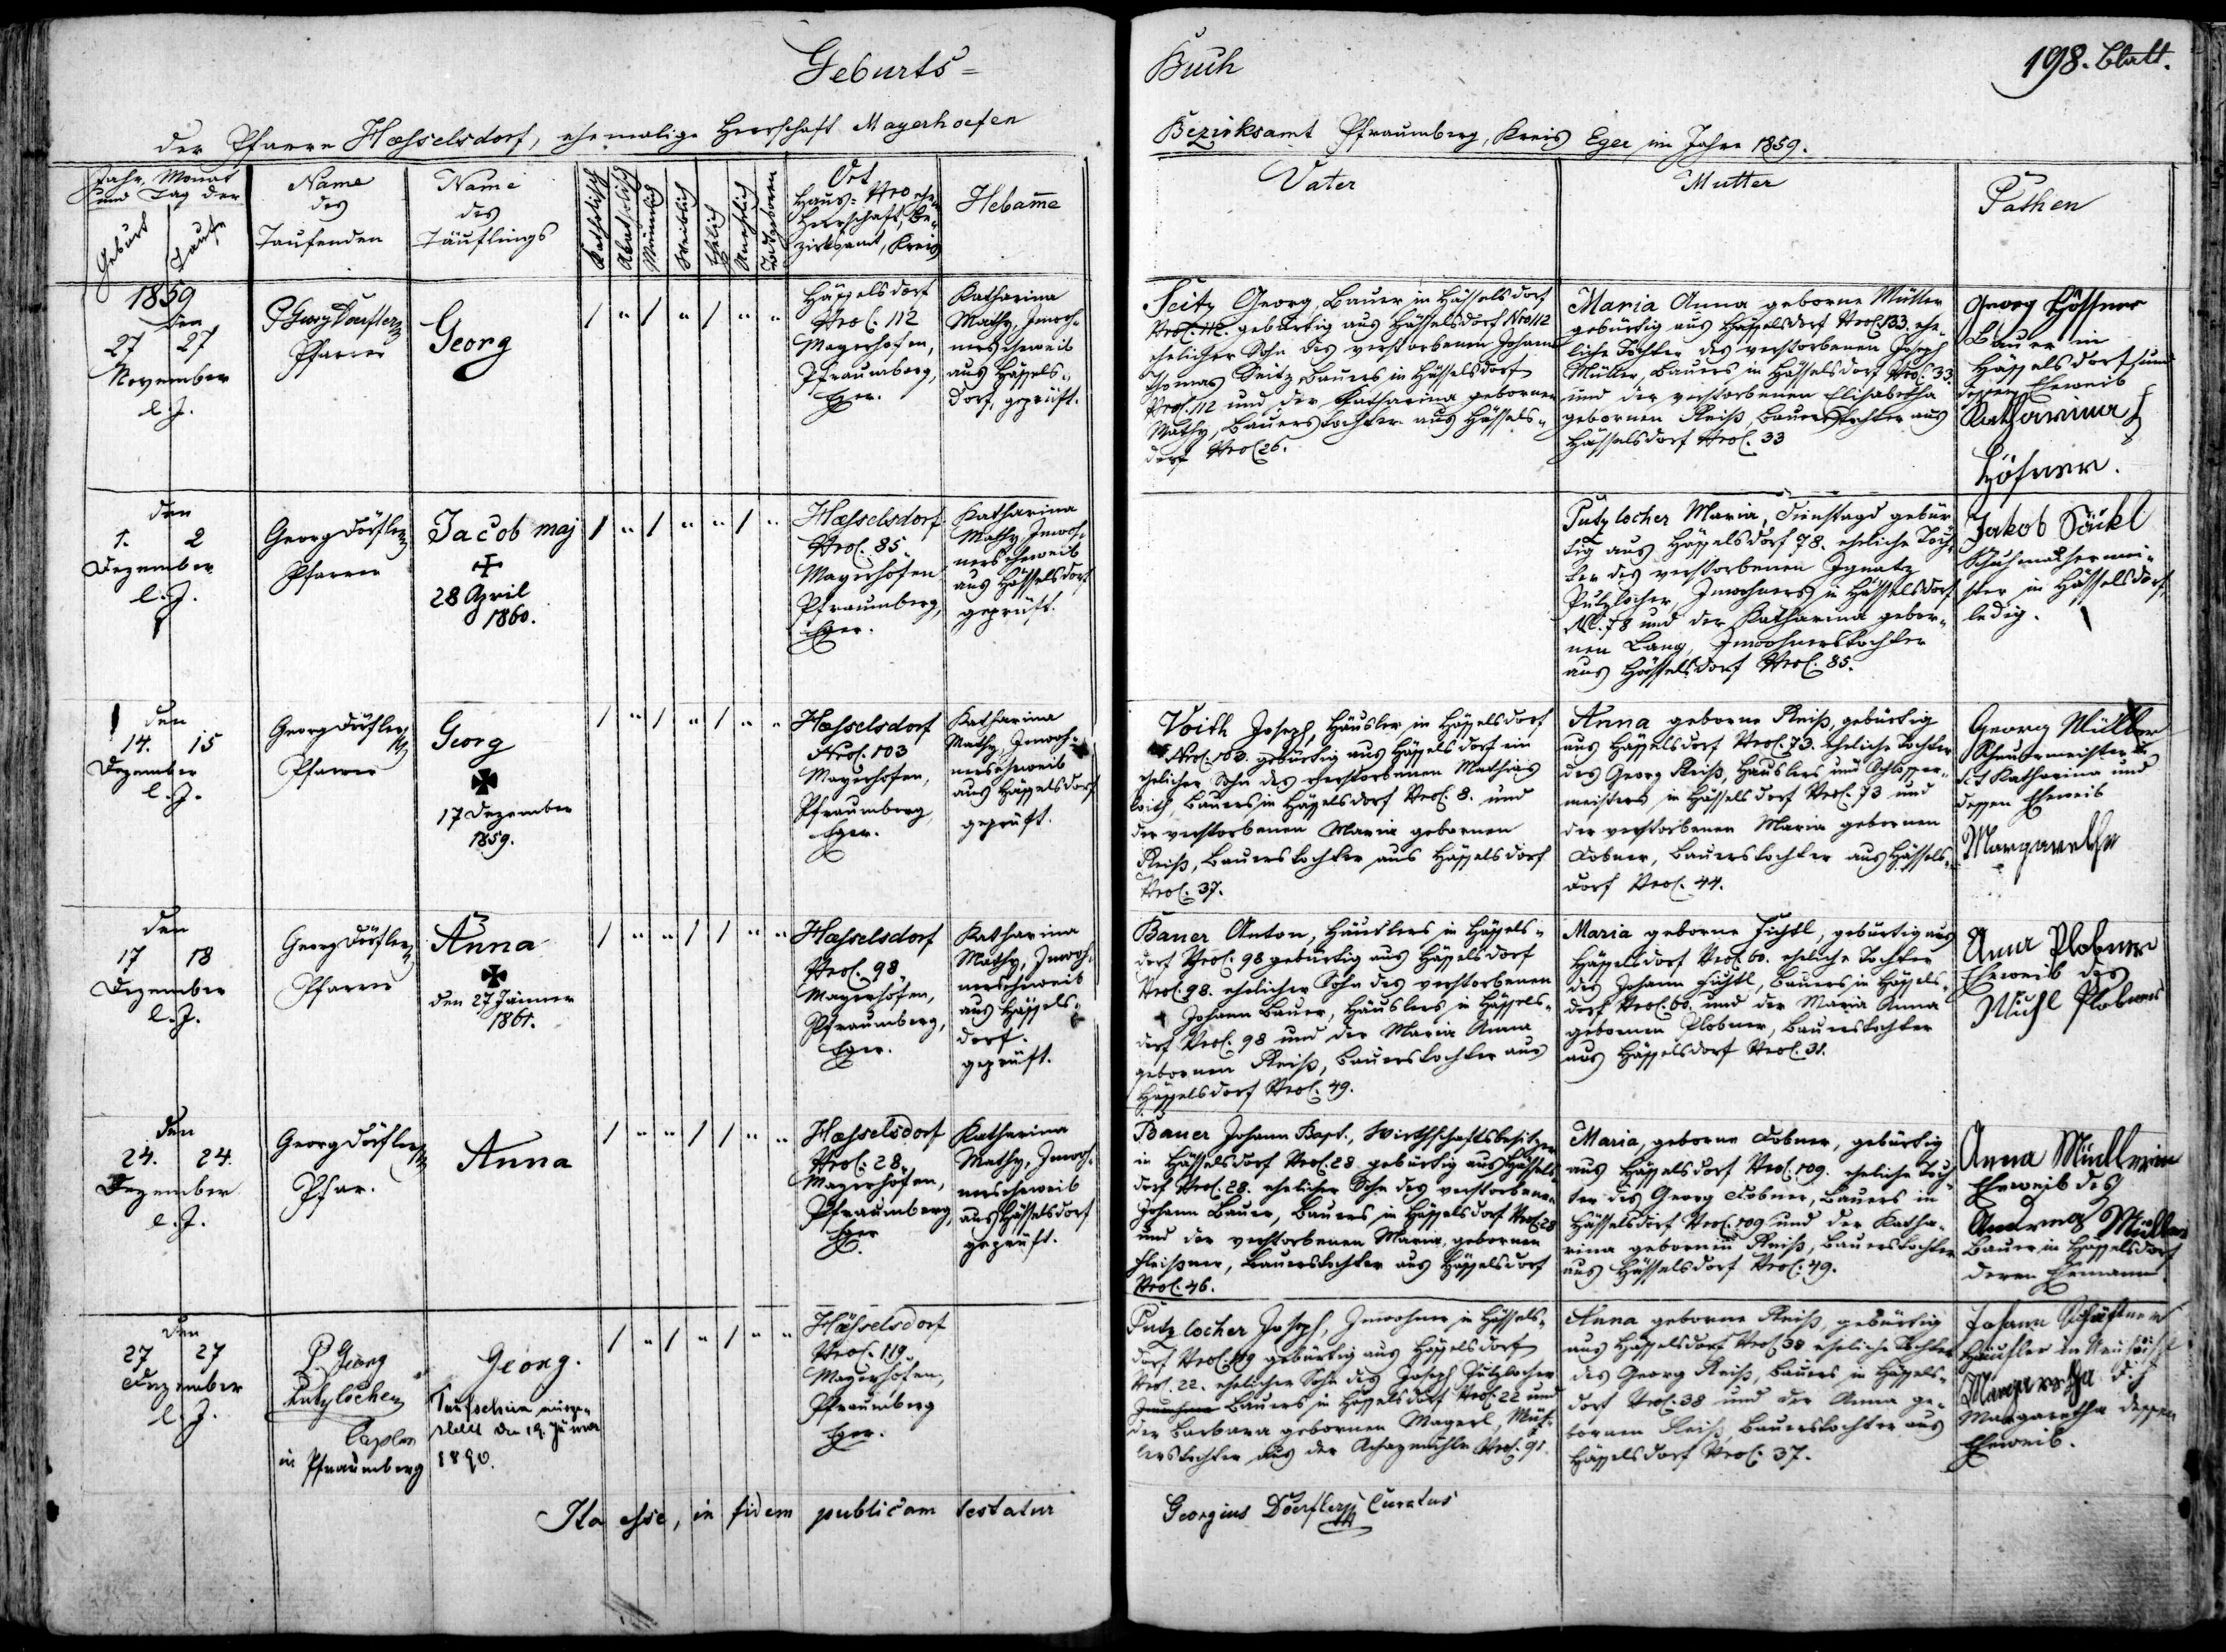 Geburts=
Buch
198. Blatt.
der Pfarre Hæsselsdorf, ehemalige Herrschaft Mayerhoefen
Bezirksamt Pfraumberg, Kreis Eger, im Jahre 1859.
Jahr, Monat
und Tag der
Geburt
Taufe
Name
des
Taufenden
Name
des
Täuflings
Katholisch
Akatholisch
Männlich
Weiblich
Ehelich
Unehelich
Todtgeboren
Ort
Haus=Nro
Herrschaft, Be-
zirksamt, Kreis
Hebamme
Vater
Mutter
Pathen
1859
den
27 27
November
l. J.
P Georg Doerfler
Pfarrer
Georg
/ " / " / " "
Hässelsdorf
NroC. 112
Mayerhofen,
Pfraumberg,
Eger.
Katharina
Mathy, Inwoh-
nerseheweib
aus Hässels-
dorf, geprüft.
Seitz Georg, Bauer in Hässelsdorf
NroC. 112. gebürtig aus Hässelsdorf Nro 112
ehelicher Sohn des verstorbenen Johann
Thomas Seitz, Bauers in Hässelsdorf
NroC. 112 und der Katharina gebornen
Mathy, Bauerstochter aus Hässels-
dorf NroC 26.
Maria Anna geborne Müller
gebürtig aus Hässelsdorf NroC. 33. ehe-
liche Tochter des verstorbenen Joseph
Müller, Bauers in Hässelsdorf NroC. 33.
und der verstorbenen Elisabetha
gebornen Reiß, Bauerstochter aus
Hässelsdorf NroC. 33
Georg Hössner
Bauer in
Hässelsdorf und
dessen Eheweib
Katharina
Höfner.
den
1. 2
Dezember
l. J.
Georg Dörfler
Pfarrer
Jacob maj
28 April
1860.
/ " / " " / "
Hæsselsdorf
NroC. 85
Mayerhöfen
Pfraumberg,
Eger.
Katharina
Mathy, Inwoh-
nerseheweib
aus Hässelsdorf
geprüft.
Putzlocher Maria, Dienstagd gebür-
tig aus Hässelsdorf 78. eheliche Toch-
ter des verstorbenen Ignatz
Putzlocher, Inwohners in Hässelsdorf
NC. 78 und der Katharina gebor-
nen Lang, Inwohnerstochter
aus Hässelsdorf NroC. 85.
Jakob Säckl
Schuhmachermei-
ster in Hässelsdorf,
ledig.
den
14. 15
Dezember
l. J.
Georg Dörfler
Pfarrer
Georg
17 Dezember
1859.
/ " / " / " "
Hæsselsdorf
NroC. 103
Mayerhofen,
Pfraumberg
Eger.
Katharina
Mathy, Inwoh-
nerseheweib
aus Hässelsdorf
geprüft.
Voith Joseph, Häusler in Hässelsdorf
NroC. 103. gebürtig aus Hässelsdorf ein
ehelicher Sohn des verstorbenen Mathias
Voith, Bauers in Hässelsdorf NroC. 8. und
der verstorbenen Maria gebornen
Reiß, Bauerstochter aus Hässelsdorf
NroC. 37.
Anna geborne Reiß, gebürtig
aus Hässelsdorf NroC. 73. eheliche Tochter
des Georg Reiß, Häuslers und Schlosser-
meisters in Hässelsdorf NroC. 73 und
der verstorbenen Maria gebornen
Dobner, Bauerstochter aus Hässels-
dorf NroC. 44.
Georg Müller
St Katharina und
dessen Eheweib
Margarethe
den
17 18
Dezember
l. J.
Georg Dörfler
Pfarrer
Anna
den 27 Jänner
1861.
/ " " / / " "
Hæsselsdorf
NroC. 98
Mayerhöfen,
Pfraumberg,
Eger.
Katharina
Mathy, Inwoh-
nerseheweib
aus Hässels-
dorf.
geprüft.
Bauer Anton, Häuslers in Hässels-
dorf NroC. 98 gebürtig aus Hässelsdorf
NroC. 98. ehelicher Sohn des verstorbenen
Johann Bauer, Häuslers in Hässels-
dorf NroC. 98 und der Maria Anna
gebornen Reiß, Bauerstochter aus
Hässelsdorf NroC. 49.
Maria geborne Fichtl, gebürtig aus
Hässelsdorf NroC. 60. eheliche Tochter
des Johann Fichtl, Bauers in Hässels-
dorf NroC. 60. und der Maria Anna
gebornen Plobner, Bauerstochter
aus Hässelsdorf NroC. 31.
Anna Plobner
Eheweib des
Michl Plobners
den
24. 24.
Dezember
l. J.
Georg Dörfler
Pfar.
Anna
/ " " / / " "
Hæsselsdorf
NroC. 28
Mayerhöfen,
Pfraumberg,
Eger
Katharina
Mathy, Inwoh-
nerseheweib
aus Hässelsdorf
geprüft.
Bauer Johann Bapt., Wirthschaftsbesitzer
in Hässelsdorf NroC. 28 gebürtig aus Hässels-
dorf NroC. 28. ehelicher Sohn des verstorbenen
Johann Bauer, Bauers in Hässelsdorf NroC. 28
und der verstorbenen Maria, gebornen
Fleißner, Bauerstochter aus Hässelsdorf
NroC. 46.
Maria, geborne Dobner, gebürtig
aus Hässelsdorf NroC. 109. eheliche Toch-
ter des Georg Dobner, Bauers in
Hässelsdorf NroC. 109 und der Katha-
rina gebornen Reiß, Bauerstochter
aus Hässelsdorf NroC. 49.
Anna Müllerin
Eheweib des
Andreas Müller
Bauer in Hässelsdorf
deren Ehemann
den
27 27
Dezember
l. J.
P. Georg
Putzlocher
Caplan
in Pfraumberg
Georg.
Taufschein ausge-
stellt den 19. Jänner
1890.
/ " / " / " "
Hässelsdorf
NroC. 119
Mayerhöfen,
Pfraumberg
Eger.
Putzlocher Joseph, Inwohner in Hässels-
dorf NroC. 119 gebürtig aus Hässelsdorf
NroC. 22. ehelicher Sohn des Joseph Putzlocher
Inwohner Bauers in Hässelsdorf NroC. 22 und
der Barbara gebornen Magerl, Mül-
lerstochter aus der NroC. 91.
Anna geborne Reiß, gebürtig
aus Hässelsdorf NroC 38 eheliche Tochter
des Georg Reiß, Bauers in Hässels-
dorf NroC. 38 und der Anna ge-
bornen Reiß, Bauerstochter aus
Hässelsdorf NroC. 37.
Johann
Häusler in
Margaretha
Margaretha dessen
Eheweib.
Ita esse, in fidem publicam testatur
Georgius Doerfler Curatus